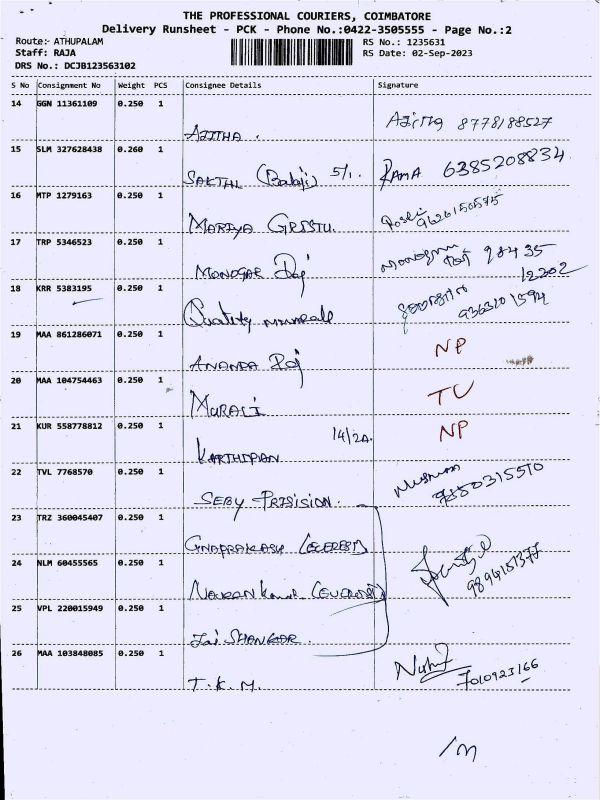 THE PROFESSIONAL COURIERS, COIMBATORE
Delivery Runsheet - PCK - Phone No.:0422-3505555 - Page No.:2
Route:- ATHUPALAM RS No.: 1235631
Staff: RAJA RS Date: 02-Sep-2023
DRS No.: DCJB123563102
S No Consignment No Weight PCS Consignee Details Signature
14 GGN 11361109 0.250 1
AJITHA. Ajitha 8778188527
15 SLM 327628438 0.260 1
SAKTHI (Balaji) 5/1. RAMA 6385208834
16 MTP 1279163 0.250 1
MARIYA 9626150575
17 TRP 5346523 0.250 1
MONOGAR Raj 98435
12202
18 KRR 5383195 0.250 1
Quality minerals 9363201594
19 MAA 861286071 0.250 1
ANANDA Raj NP
20 MAA 104754463 0.250 1
MURALI TC
21 KUR 558778812 0.250 1
14/2A. NP
22 TVL 7768570 0.250 1
SEBY PRISISION. 9850315570
23 TRZ 360045407 0.250 1
24 NLM 60455565 0.250 1
9894151377
25 VPL 220015949 0.250 1
Jai SHANKAR.
26 MAA 103848085 0.250 1
T.K.M. 7010923166